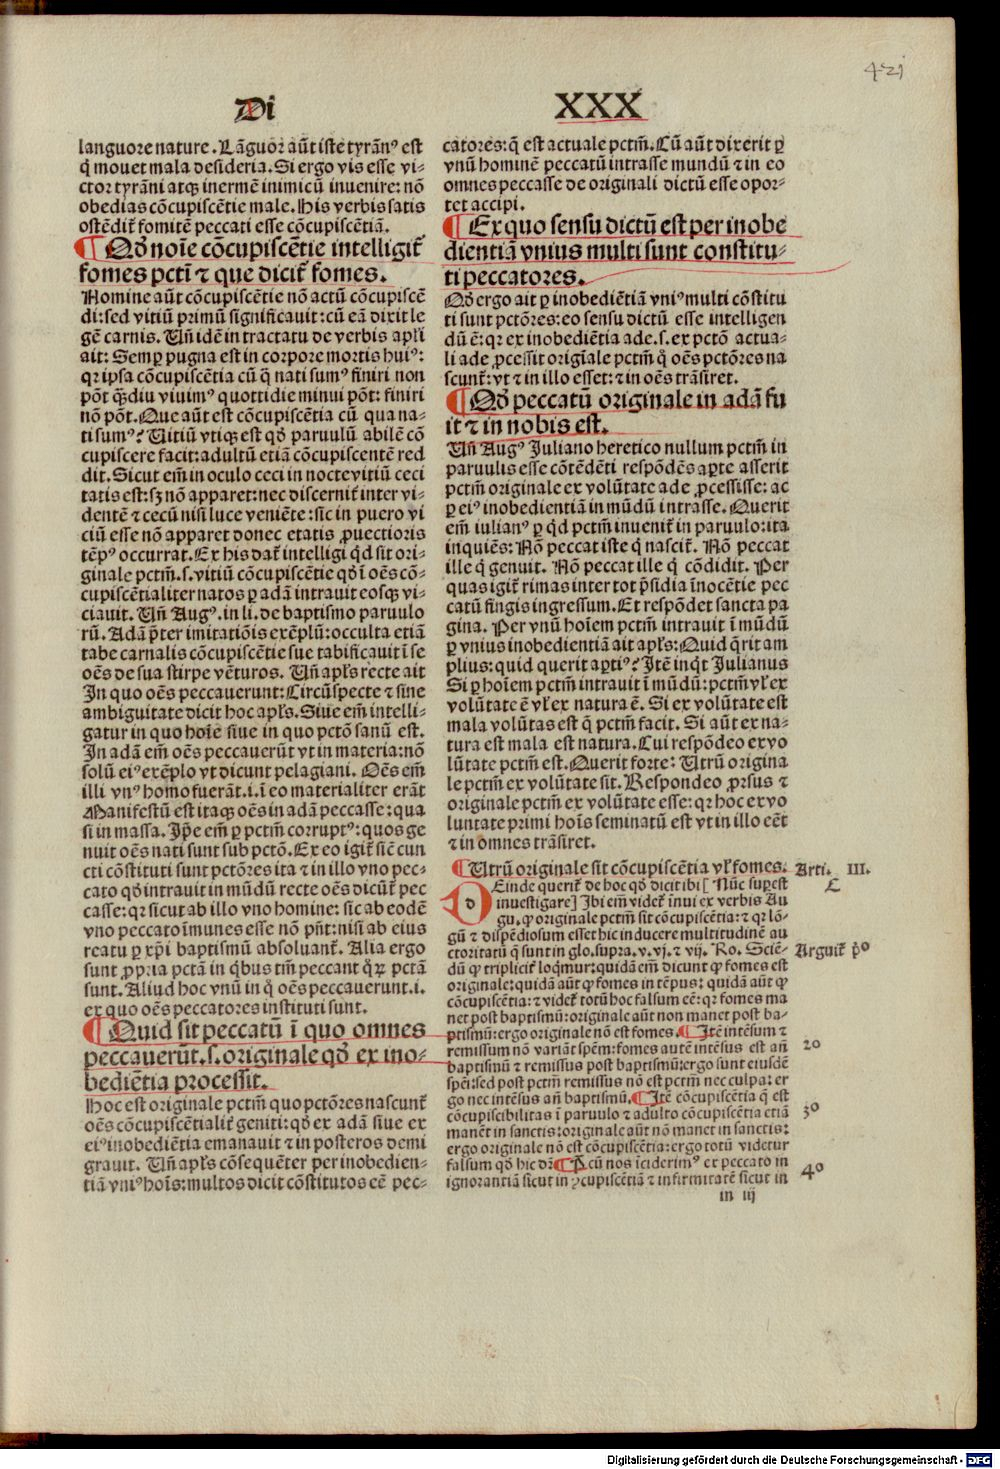 421
Di
XXX
languore nature. Lãguor aũt iste tyrãnꝰ est
q̇ mouet mala desideria. Si ergo vis esse vi-
ctor tyrãni atqꝫ inermẽ inimicũ inuenire: nõ
obedias cõcupiscẽtie male. His verbis satis
ostẽdit̃ fomitẽ peccati esse cõcupiscẽtiã.
¶ Qð noĩe cõcupiscẽtie intelligit̃
fomes pctĩ ⁊ que dicit̃ fomes.
Nomine aũt cõcupiscẽtie nõ actũ cõcupiscẽ
di: sed vitiũ primũ significauit: cũ eã dixit le
gẽ carnis. Uñ idẽ in tractatu de verbis apl̃i
ait: Semꝑ pugna est in corpore mortis huiꝰ:
qꝛ ipsa cõcupiscẽtia cũ q̃ nati sumꝰ finiri non
põt q̃diu viuimꝰ quottidie minui põt: finiri
nõ põt. Que aũt est cõcupiscẽtia cũ qua na-
ti sumꝰ? Uitiũ vtiqꝫ est qð paruulũ abilẽ cõ
cupiscere facit: adultũ etiã cõcupiscentẽ red
dit. Sicut em̃ in oculo ceci in nocte vitiũ ceci
tatis est: sꝫ nõ apparet: nec discernit̃ inter vi-
dentẽ ⁊ cecũ nisi luce veniẽte: sic in puero vi
ciũ esse nõ apparet donec etatis ꝓuectioris
tẽpꝰ occurrat. Ex his dat̃ intelligi qd̃ sit ori-
ginale pctm̃. s. vitiũ cõcupiscẽtie qð ĩ oẽs cõ-
cupiscẽtialiter natos ꝑ adã intrauit eosqꝫ vi-
ciauit. Uñ Augꝰ. in li. de baptismo paruulo
rũ. Adã p̃ter imitatiõis exẽplũ: occulta etiã
tabe carnalis cõcupiscẽtie sue tabificauit ĩ se
oẽs de sua stirpe vẽturos. Uñ apl̃s recte ait
In quo oẽs peccauerunt: Circũspecte ⁊ sine
ambiguitate dicit hoc apl̃s. Siue em̃ intelli-
gatur in quo hoĩe siue in quo pctõ sanũ est.
In adã em̃ oẽs peccauerũt vt in materia: nõ
solũ eiꝰ exẽplo vt dicunt pelagiani. Oẽs em̃
illi vnꝰ homo fuerãt. i. ĩ eo materialiter erãt
Manifestũ est itaqꝫ oẽs in adã peccasse: qua
si in massa. Ip̃e em̃ ꝑ pctm̃ corruptꝰ: quos ge
nuit oẽs nati sunt sub pctõ. Ex eo igit̃ siẽ cun
cti cõstituti sunt pctõres ita ⁊ in illo vno pec-
cato qð intrauit in mũdũ recte oẽs dicũt̃ pec
casse: qꝛ sicut ab illo vno homine: sic ab eodẽ
vno peccato ĩmunes esse nõ pñt: nisi ab eius
reatu ꝑ xp̃i baptismũ absoluant̃. Alia ergo
sunt ꝓpria pctã in q̇bus tm̃ peccant q̇ꝝ pctã
sunt. Aliud hoc vnũ in q̊ oẽs peccauerunt. i.
ex quo oẽs peccatores instituti sunt.
¶ Quid sit peccatũ ĩ quo omnes
peccauerũt. s. originale qð ex ino-
bediẽtia processit.
Hoc est originale pctm̃ quo pctõres nascunt̃
oẽs cõcupiscẽtialit̃ geniti: qð ex adã siue ex
eiꝰ inobediẽtia emanauit ⁊ in posteros demi
grauit. Uñ apl̃s cõsequẽter per inobedien-
tiã vniꝰ hoĩs: multos dicit cõstitutos eẽ pec-
catores: q̃ est actuale pctm̃. Cũ aũt dixerit ꝑ
vnũ hominẽ peccatũ intrasse mundũ ⁊ in eo
omnes peccasse de originali dictũ esse opor-
tet accipi.
¶ Ex quo sensu dictũ est per inobe
dientiã vnius multi sunt constitu-
ti peccatores.
Qð ergo ait ꝑ inobediẽtiã vniꝰ multi cõstitu
ti sunt pctõres: eo sensu dictũ esse intelligen
dũ ẽ: qꝛ ex inobediẽtia ade. s. ex pctõ actua-
li ade ꝓcessit origĩale pctm̃ q̊ oẽs pctõres na
scunt̃: vt ⁊ in illo esset: ⁊ in oẽs trãsiret.
¶ Qð peccatũ originale in adã fu
it ⁊ in nobis est.
Uñ Augꝰ Juliano heretico nullum pctm̃ in
paruulis esse cõtẽdẽti respõdẽs aꝑte asserit
pctm̃ originale ex volũtate ade ꝓcessisse: ac
ꝑ eiꝰ inobedientiã in mũdũ intrasse. Querit
em̃ iulianꝰ ꝑ qd̃ pctm̃ inuenit̃ in paruulo: ita
inquiẽs: Nõ peccat iste q̇ nascit̃. Nõ peccat
ille q̇ genuit. Nõ peccat ille q̇ cõdidit. Per
quas igit̃ rimas inter tot p̃sidia ĩnocẽtie pec
catũ fingis ingressum. Et respõdet sancta pa
gina. Per vnũ hoĩem pctm̃ intrauit ĩ mũdũ
ꝑ vnius inobedientiã ait apl̃s: Quid q̃rit am
plius: quid querit aꝑtiꝰ? Itẽ inq̇t Julianus
Si ꝑ hoĩem pctm̃ intrauit ĩ mũdũ: pctm̃ vl̃ ex
volũtate ẽ vl̃ ex natura ẽ. Si ex volũtate est
mala volũtas est q̃ pctm̃ facit. Si aũt ex na-
tura est mala est natura. Cui respõdeo ex vo
lũtate pctm̃ est. Querit forte: Utrũ origina
le pctm̃ ex volũtate sit. Respondeo ꝓrsus ⁊
originale pctm̃ ex volũtate esse: qꝛ hoc ex vo
luntate primi hoĩs seminatũ est vt in illo eẽt
⁊ in omnes trãsiret.
¶ Utrũ originale sit cõcupiscẽtia vl̃ fomes. Arti. III.
Deinde querit̃ de hoc qð dicit ibi [ Nũc suꝑest C
inuestigare] Ibi em̃ videt̃ inui ex verbis Au
gu. ꝙ originale pctm̃ sit cõcupiscẽtia: ⁊ qꝛ lõ-
gũ ⁊ dispẽdiosum esset hic inducere multitudinẽ au
ctoritatũ q̃ sunt in glo. supra. v. vj. ⁊ vij. Ro. Sciẽ- Arguit̃ pº
dũ ꝙ triplicit̃ loq̃mur: quidã em̃ dicunt ꝙ fomes est
originale: quidã aũt ꝙ fomes in tẽpus: quidã aũt ꝙ
cõcupiscẽtia: ⁊ videt̃ totũ hoc falsum eẽ: qꝛ fomes ma
net post baptismũ: originale aũt non manet post ba-
ptismũ: ergo originale nõ est fomes. ¶ Itẽ intẽsum ⁊
remissum nõ variãt spẽm: fomes autẽ intẽsus est añ 20
baptismũ ⁊ remissus post baptismũ: ergo sunt eiusdẽ
spẽi: sed post pctm̃ remissus nõ est pctm̃ nec culpa: er
go nec intẽsus añ baptismũ. ¶ Itẽ cõcupiscẽtia q̃ est
cõcupiscibilitas ĩ paruulo ⁊ adulto cõcupiscẽtia etiã 30
manẽt in sanctis: originale aũt nõ manet in sanctis:
ergo originale nõ est cõcupiscẽtia: ergo totũ videtur
falsum qð hic dr̃. ¶ Ac̃ũ nos ĩciderimꝰ ex peccato in
ignorantiã sicut in ꝯcupiscẽtiã ⁊ infirmitatẽ sicut in 40
m iij
Digitalisierung gefördert durch die Deutsche Forschungsgemeinschaft - DFG